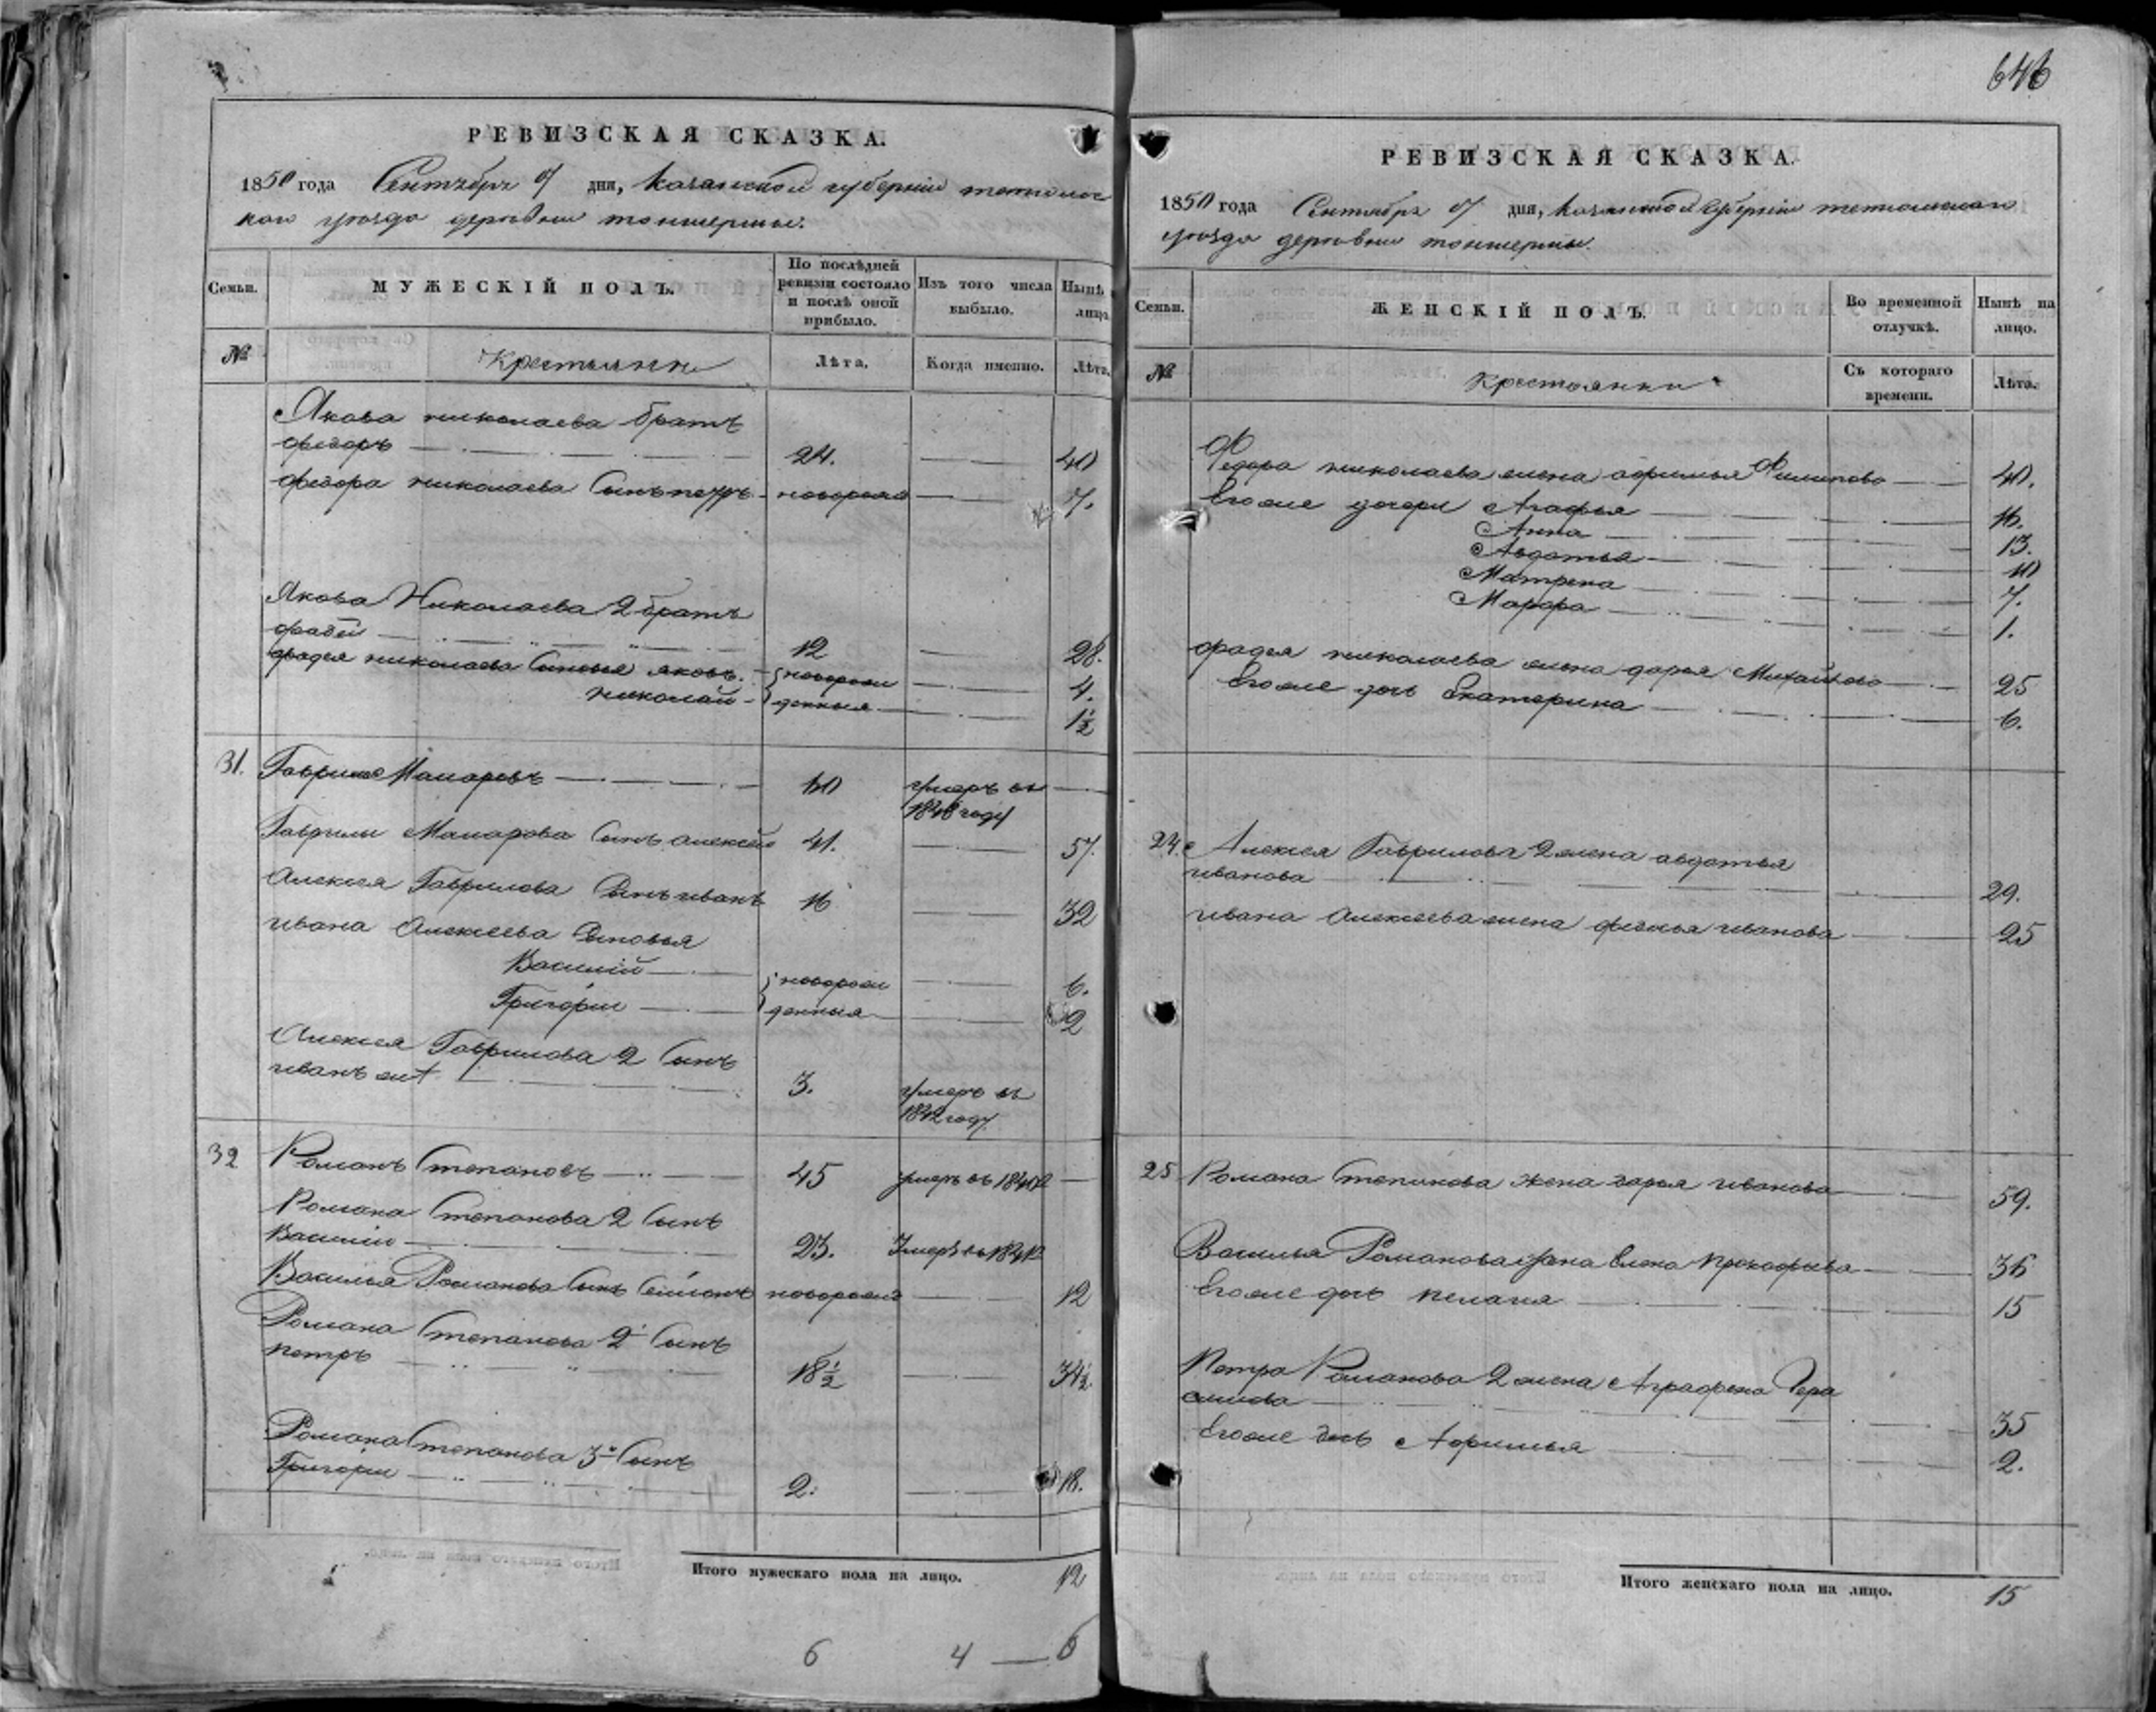 РЕВИЗСКАЯ СКАЗКА.
1850 года Сентября 7 дня, Казанской губернiи тетюшс
каго уѣзда деревни тоншермы.
Семьи.
МУЖЕСКІЙ ПОЛЪ.
По послѣдней ревизіи состояло и послѣ оной прибыло.
Изъ того числа выбыло.
Нынѣ лицо.
№
Крестьянн
Лѣта.
Когда именно.
Лѣта.
Якова николаева братъ
федоръ 24. 40
федора николаева Сынъ петръ новорожд 7.
Якова Николаева 2 братъ
фадей 12 28.
фадея николаева Сыновья яковъ новорож 4.
николай денныя 1½
31. Гаврила Макаровъ 60 умеръ въ
1848 году
Гаврилы Макарова Сынъ алексей 41. 57.
Алексея Гаврилова Сынъ иванъ 16 32
ивана Алексеева Сыновья
Василiй новорож 6.
Григорiи денныя 2
Алексея Гаврилова 2 Сынъ
иванъ 3. умеръ въ
1842 году
32 Романъ Степановъ 45 умеръ въ
Романа Степанова 2 Сынъ
Василiи 23. Умеръ въ
Василья Романова Сынъ Семионъ новорожд 12
Романа Степанова 2 Сынъ
петръ 18½ 34½
Романа Степанова 3й Сынъ
Григорiи 2. 18.
Итого мужескаго пола на лицо. 12
6 4 — 6
646
РЕВИЗСКАЯ СКАЗКА.
1850 года Сентября 7 дня, Казанской губернiи тетюшскаго
уѣзда деревни тоншермы.
Семьи.
ЖЕНСКІЙ ПОЛЪ.
Во временной отлучкѣ.
Нынѣ на лицо.
№
Крестьянки
Съ котораго времени.
Лѣта.
Федора николаева жена афимья Филипова 40.
Егоже дочери Агафья 16.
Анна 13.
Авдотья 10
Матрена 7.
Марфа 1.
фадея николаева жена дарья Михайлова 25
Егоже дочь Екатерина 6.
24. Алексея Гаврилова 2 жена авдотья
иванова 29.
ивана Алексеева жена федосья иванова 25
25 Романа Степанова жена дарья иванова 59.
Василья Романова жена Елена прокофьева 36
Егоже дочь пелагея 15
Петра Романова 2 жена Аграфена Гера
симова 35
Егоже дочь Афимья 2.
Итого женскаго пола на лицо. 15